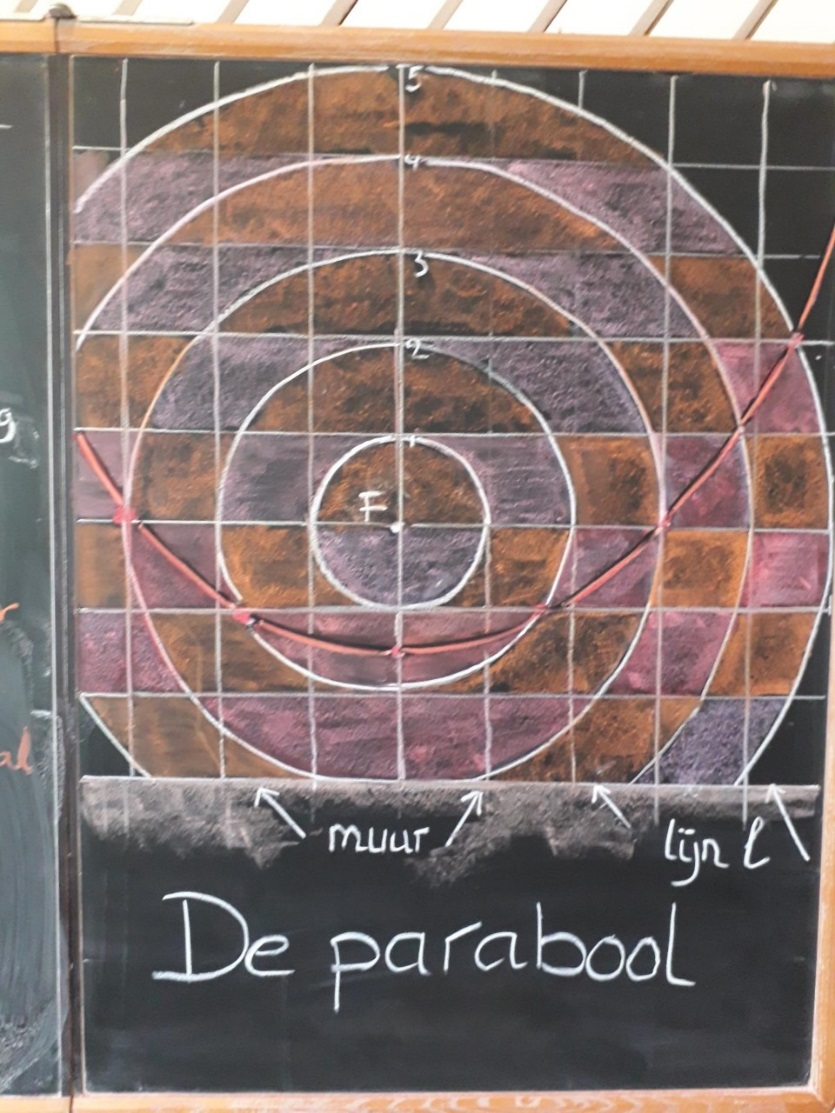 5
4
3
2
1
F
g
al
muur
lijn l
De parabool